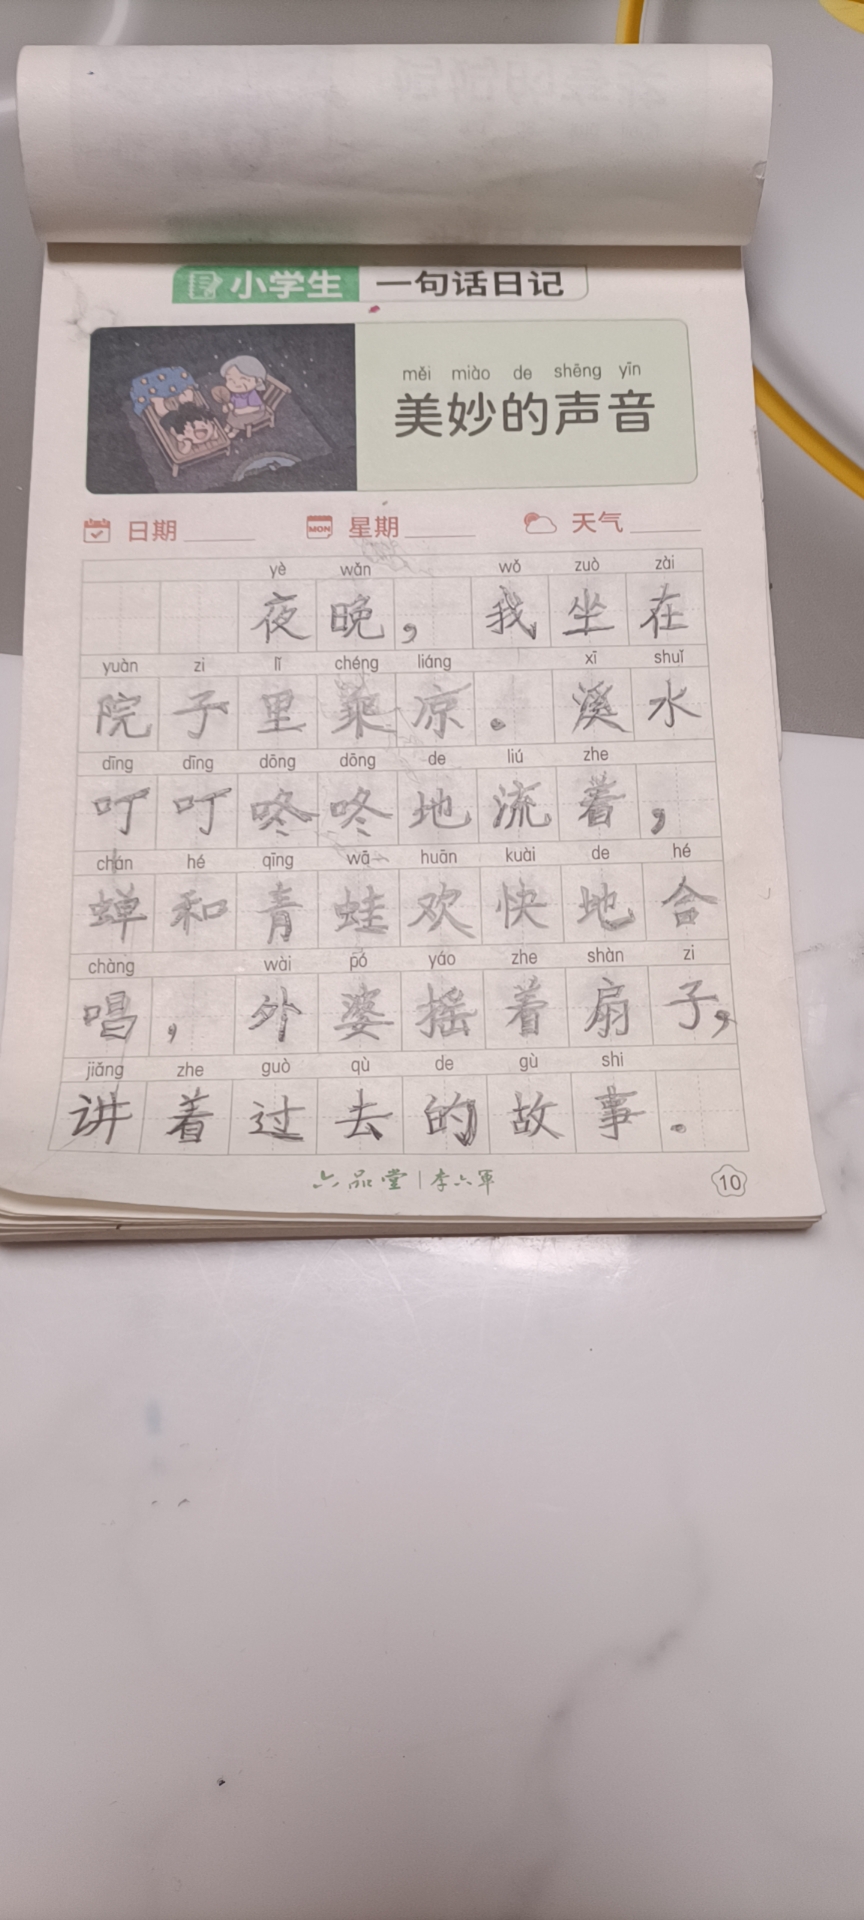 小学生 一句话日记
měi miào de shēng yīn
美妙的声音
MON
日期 星期 天气
yè wǎn wǒ zuò zài
夜晚，我坐在
yuàn zi lǐ chéng liáng xī shuǐ
院子里乘凉。溪水
dīng dīng dōng dōng de liú zhe
叮叮咚咚地流着，
chán hé qīng wā huān kuài de hé
蝉和青蛙欢快地合
chàng wài pó yáo zhe shàn zi
唱，外婆摇着扇子，
jiǎng zhe guò qù de gù shi
讲着过去的故事。
六品堂 | 李六军
10